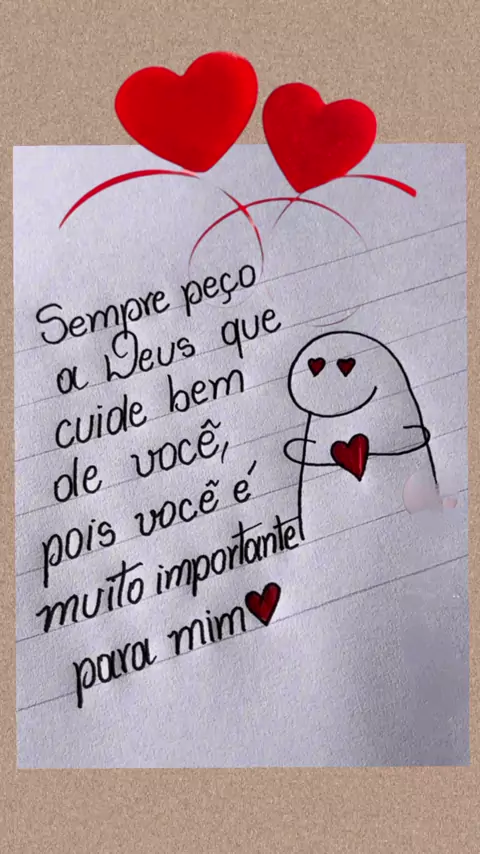 Sempre peço
a Deus que
cuide bem
de você,
pois você é
muito importante
para mim